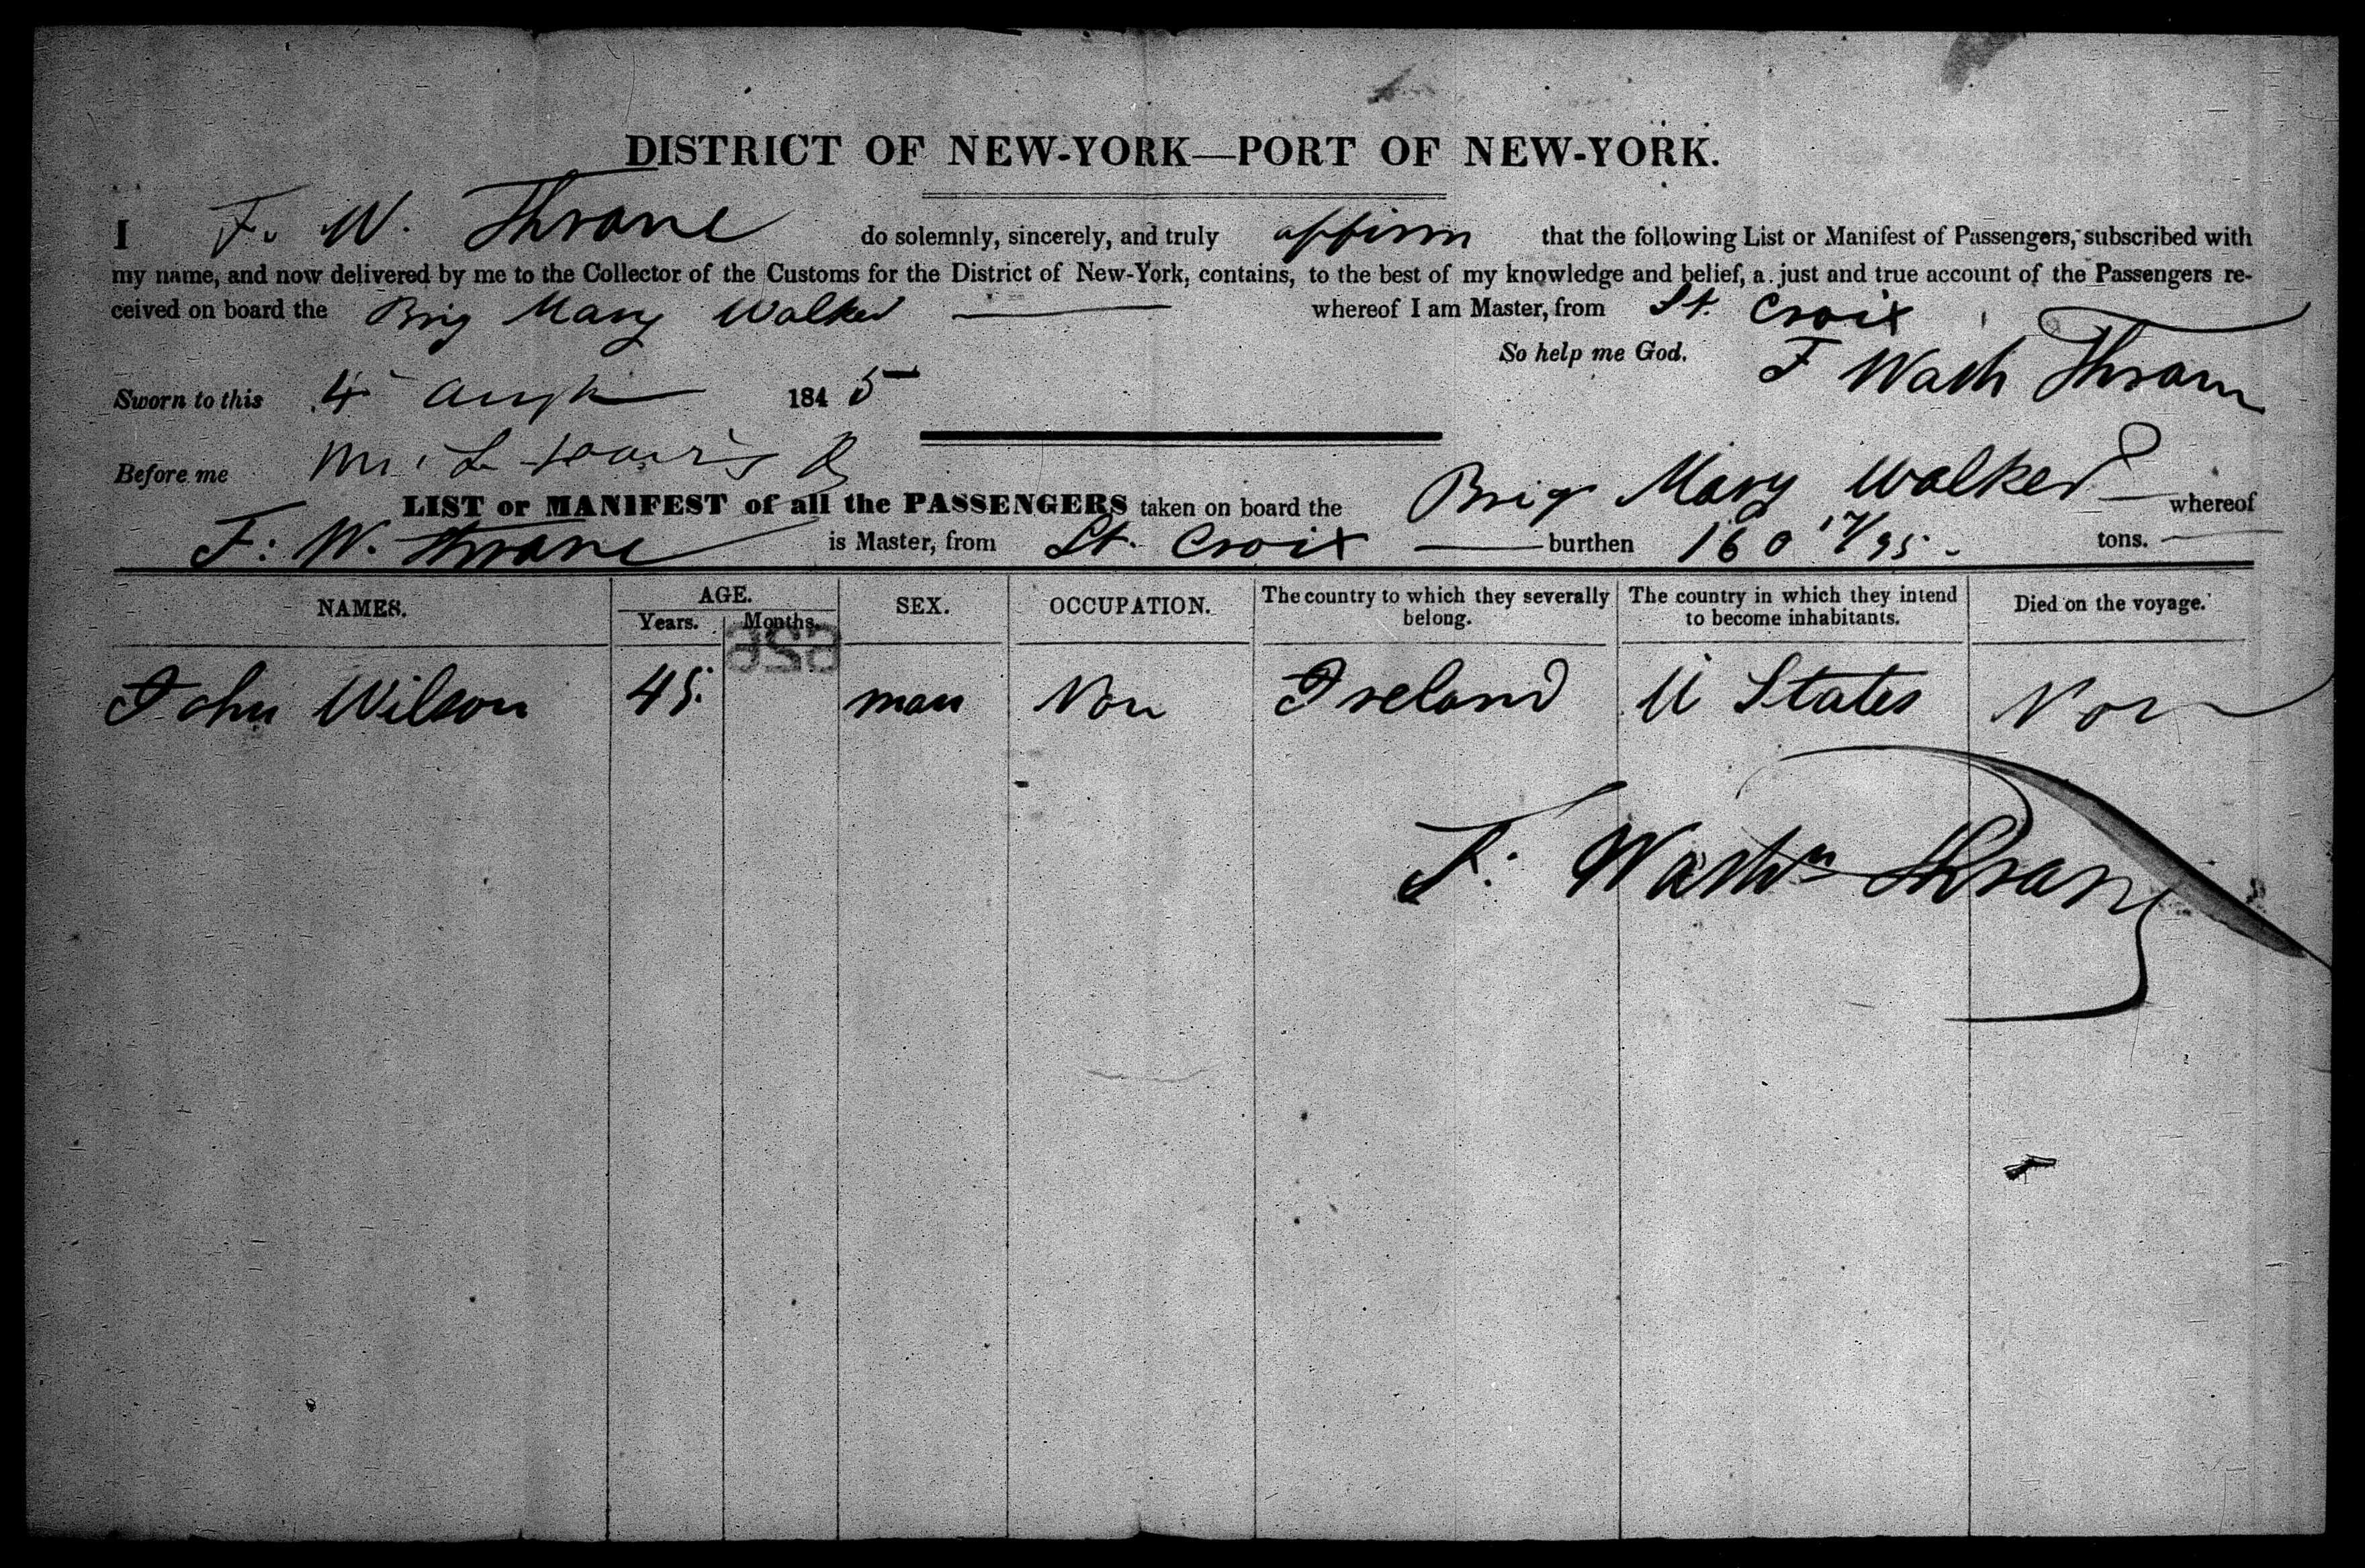 DISTRICT OF NEW-YORK—PORT OF NEW-YORK.
I F. W. Thrane do solemnly, sincerely, and truly affirm that the following List or Manifest of Passengers, subscribed with
my name, and now delivered by me to the Collector of the Customs for the District of New-York, contains, to the best of my knowledge and belief, a just and true account of the Passengers re-
ceived on board the Brig Mary Walker whereof I am Master, from St. Croix
So help me God. F Wash Thrane
Sworn to this 4 Augt 1845
Before me
LIST or MANIFEST of all the PASSENGERS taken on board the Brig Mary Walker whereof
F. W. Thrane is Master, from St. Croix burthen 160 17/95 tons.
NAMES. AGE. Years. Months. SEX. OCCUPATION. The country to which they severally belong. The country in which they intend to become inhabitants. Died on the voyage.
John Wilson 45 man Non Ireland U States Non
F. Washn Thrane